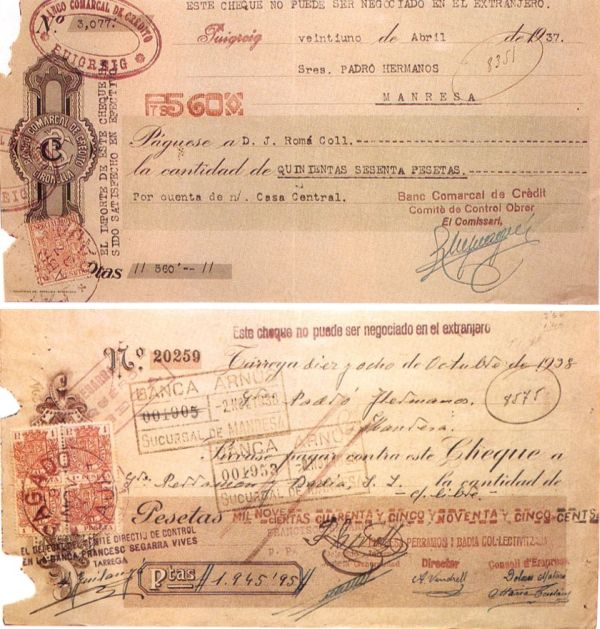 ESTE CHEQUE NO PUEDE SER NEGOCIADO EN EL EXTRANJERO.
BANCO COMARCAL DE CRÉDITO
Nº 3,077
PUIGREIG
Puigreig veintiuno de Abril de 1937.
8351
Sres. PADRÓ HERMANOS
MANRESA
PTS 560
EL IMPORTE DE ESTE CHEQUE
SIDO SATISFECHO EN EFECTIVO
Páguese a D. J. Romá Coll.
la cantidad de QUINIENTAS SESENTA PESETAS.
Por cuenta de n/. Casa Central.
Banc Comarcal de Crèdit
Comitè de Control Obrer
El Comissari,
Ptas //560'--//
Este cheque no puede ser negociado en el extranjero
Nº 20259
Tárrega diez y ocho de Octubre de 1938
BANCA ARNÚS
001005
SUCURSAL DE MANRESA
Padró Hermanos
8575
Manresa
BANCA ARNÚS
001953
SUCURSAL DE MANRESA
Sírvase pagar contra este Cheque a
Perramon y Badía, S. L. la cantidad de
Pesetas MIL NOVECIENTAS CUARENTA Y CINCO Y NOVENTA Y CINCO CENTS
PAGADO
EL DELEGAT DEL COMITÉ DIRECTIU DE CONTROL
EN LA BANCA FRANCESC SEGARRA VIVES
TARREGA
P. P.
PERRAMON I BADIA COL·LECTIVITZADA
Director
Consell d'Empresa
A. Vendrell
Ptas 1.945'95